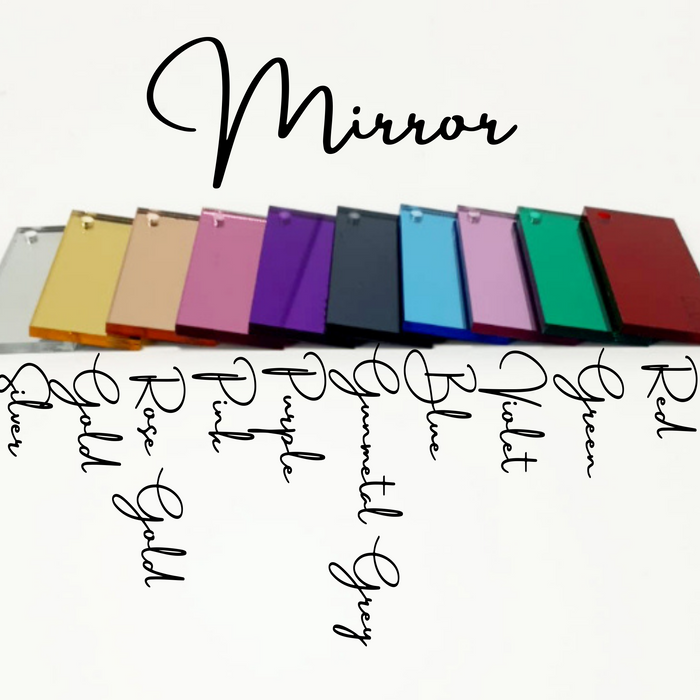 Mirror
Silver
Gold
Rose Gold
Pink
Purple
Gunmetal Grey
Blue
Violet
Green
Red